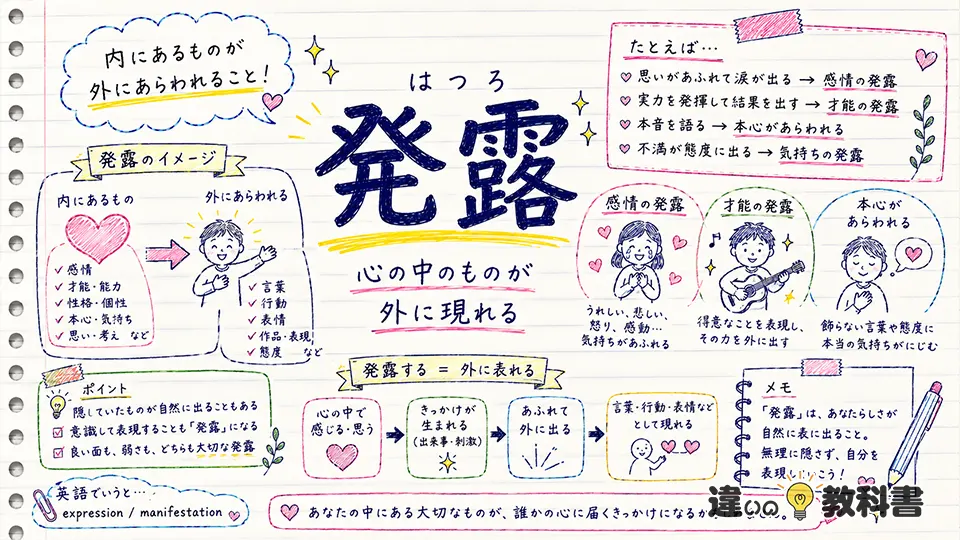 内にあるものが
外にあらわれること!
はつろ
発露
心の中のものが
外に現れる
たとえば…
思いがあふれて涙が出る → 感情の発露
実力を発揮して結果を出す → 才能の発露
本音を語る → 本心があらわれる
不満が態度に出る → 気持ちの発露
発露のイメージ
内にあるもの
感情
才能・能力
性格・個性
本心・気持ち
思い・考え など
外にあらわれる
言葉
行動
表情
作品・表現
態度 など
感情の発露
うれしい、悲しい、
怒り、感動…
気持ちがあふれる
才能の発露
得意なことを表現し、
その力を外に出す
本心が
あらわれる
飾らない言葉や態度に
本当の気持ちがにじむ
ポイント
隠していたものが自然に出ることもある
意識して表現することも「発露」になる
良い面も、弱さも、どちらも大切な発露
発露する = 外に表れる
心の中で
感じる・思う
きっかけが
生まれる
(出来事・刺激)
あふれて
外に出る
言葉・行動・表情など
として現れる
メモ
「発露」は、あなたらしさが
自然に表に出ること。
無理に隠さず、自分を
表現しいこう!
英語でいうと…
expression / manifestation
あなたの中にある大切なものが、誰かの心に届くきっかけになるか
違いの教科書